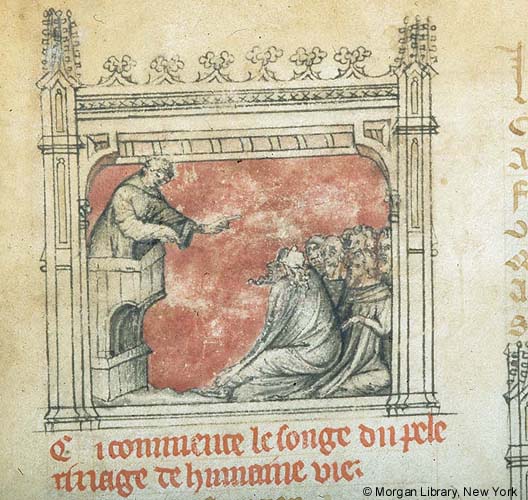 Ci commence le songe du pele
rinage de humaine vie.
© Morgan Library, New York